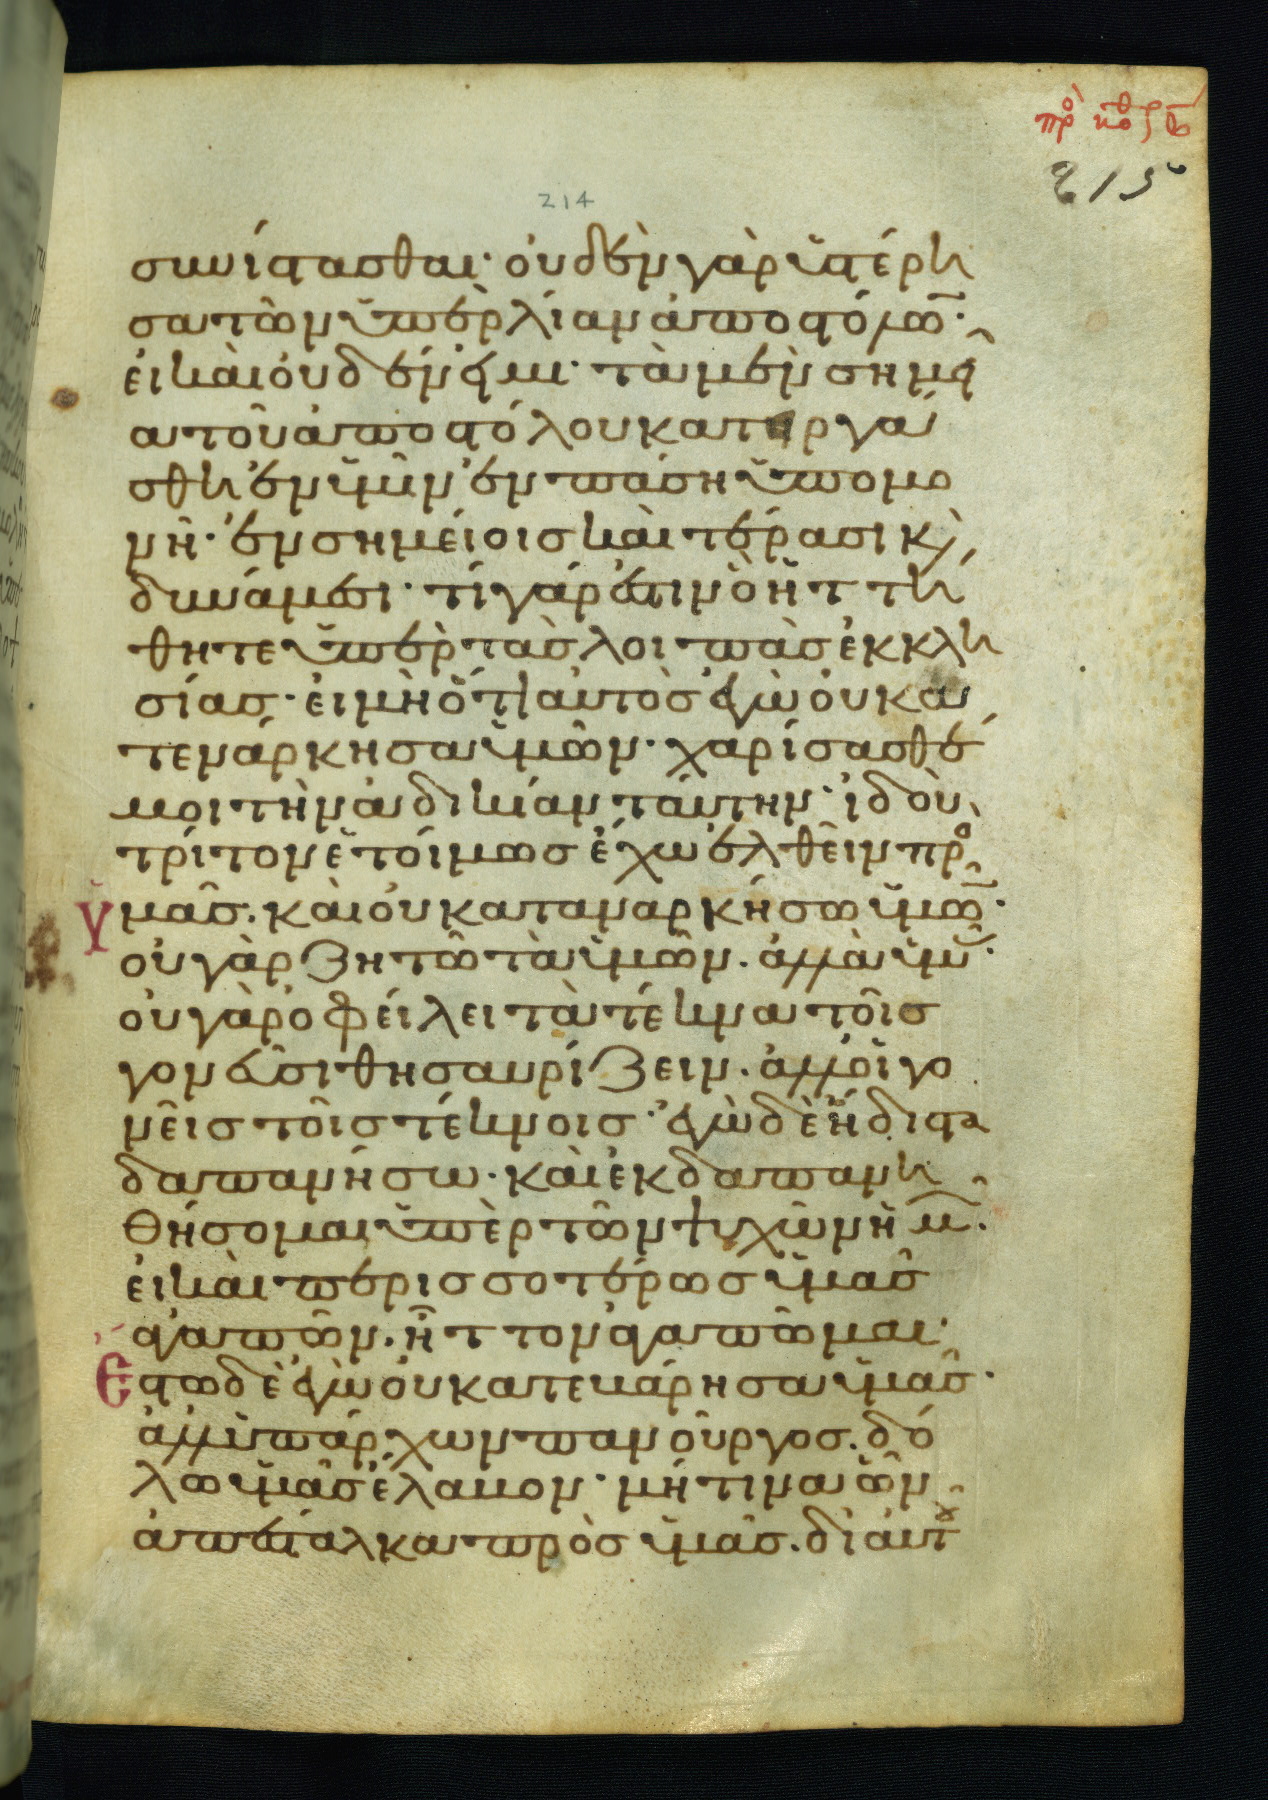 πρὸ κορθ β
215
214
συνίστασθαι· οὐδὲν γὰρ ὑστέρη
σα τῶν ὑπὲρ λίαν ἀποστόλων·
εἰ καὶ οὐδέν εἰμι· τὰ μὲν σημεῖ
α τοῦ ἀποστόλου κατηργά
σθη ἐν ὑμῖν ἐν πάσῃ ὑπομο
νῇ· ἐν σημείοις καὶ τέρασι κ(αὶ)
δυνάμεσι· τί γάρ ἐστιν ὃ ἥττή
θητε ὑπὲρ τὰς λοιπὰς ἐκκλη
σίας· εἰ μὴ ὅτι αὐτὸς ἐγὼ οὐ κα
τενάρκησα ὑμῶν· χαρίσασθέ
μοι τὴν ἀδικίαν ταύτην· ἰδοὺ
τρίτον ἑτοίμως ἔχω ἐλθεῖν πρὸ(ς)
ὑμᾶς· καὶ οὐ καταναρκήσω ὑμῶν·
οὐ γὰρ ζητῶ τὰ ὑμῶν· ἀλλὰ ὑμᾶς·
οὐ γὰρ ὀφείλει τὰ τέκνα τοῖς
γονεῦσι θησαυρίζειν· ἀλλ' οἱ γο
νεῖς τοῖς τέκνοις· ἐγὼ δὲ ἥδιστα
δαπανήσω· καὶ ἐκδαπανη
θήσομαι ὑπὲρ τῶν ψυχῶν ἡμῶν·
εἰ καὶ περισσοτέρως ὑμᾶς
ἀγαπῶν· ἧττον ἀγαπῶμαι·
Ἔστω δὲ ἐγὼ οὐ κατεβάρησα ὑμᾶς·
ἀλλ' ὑπάρχων πανοῦργος· δό
λω ὑμᾶς ἔλαβον· μή τινα ὧν
ἀπέσταλκα πρὸς ὑμᾶς· δι' αὐτοῦ